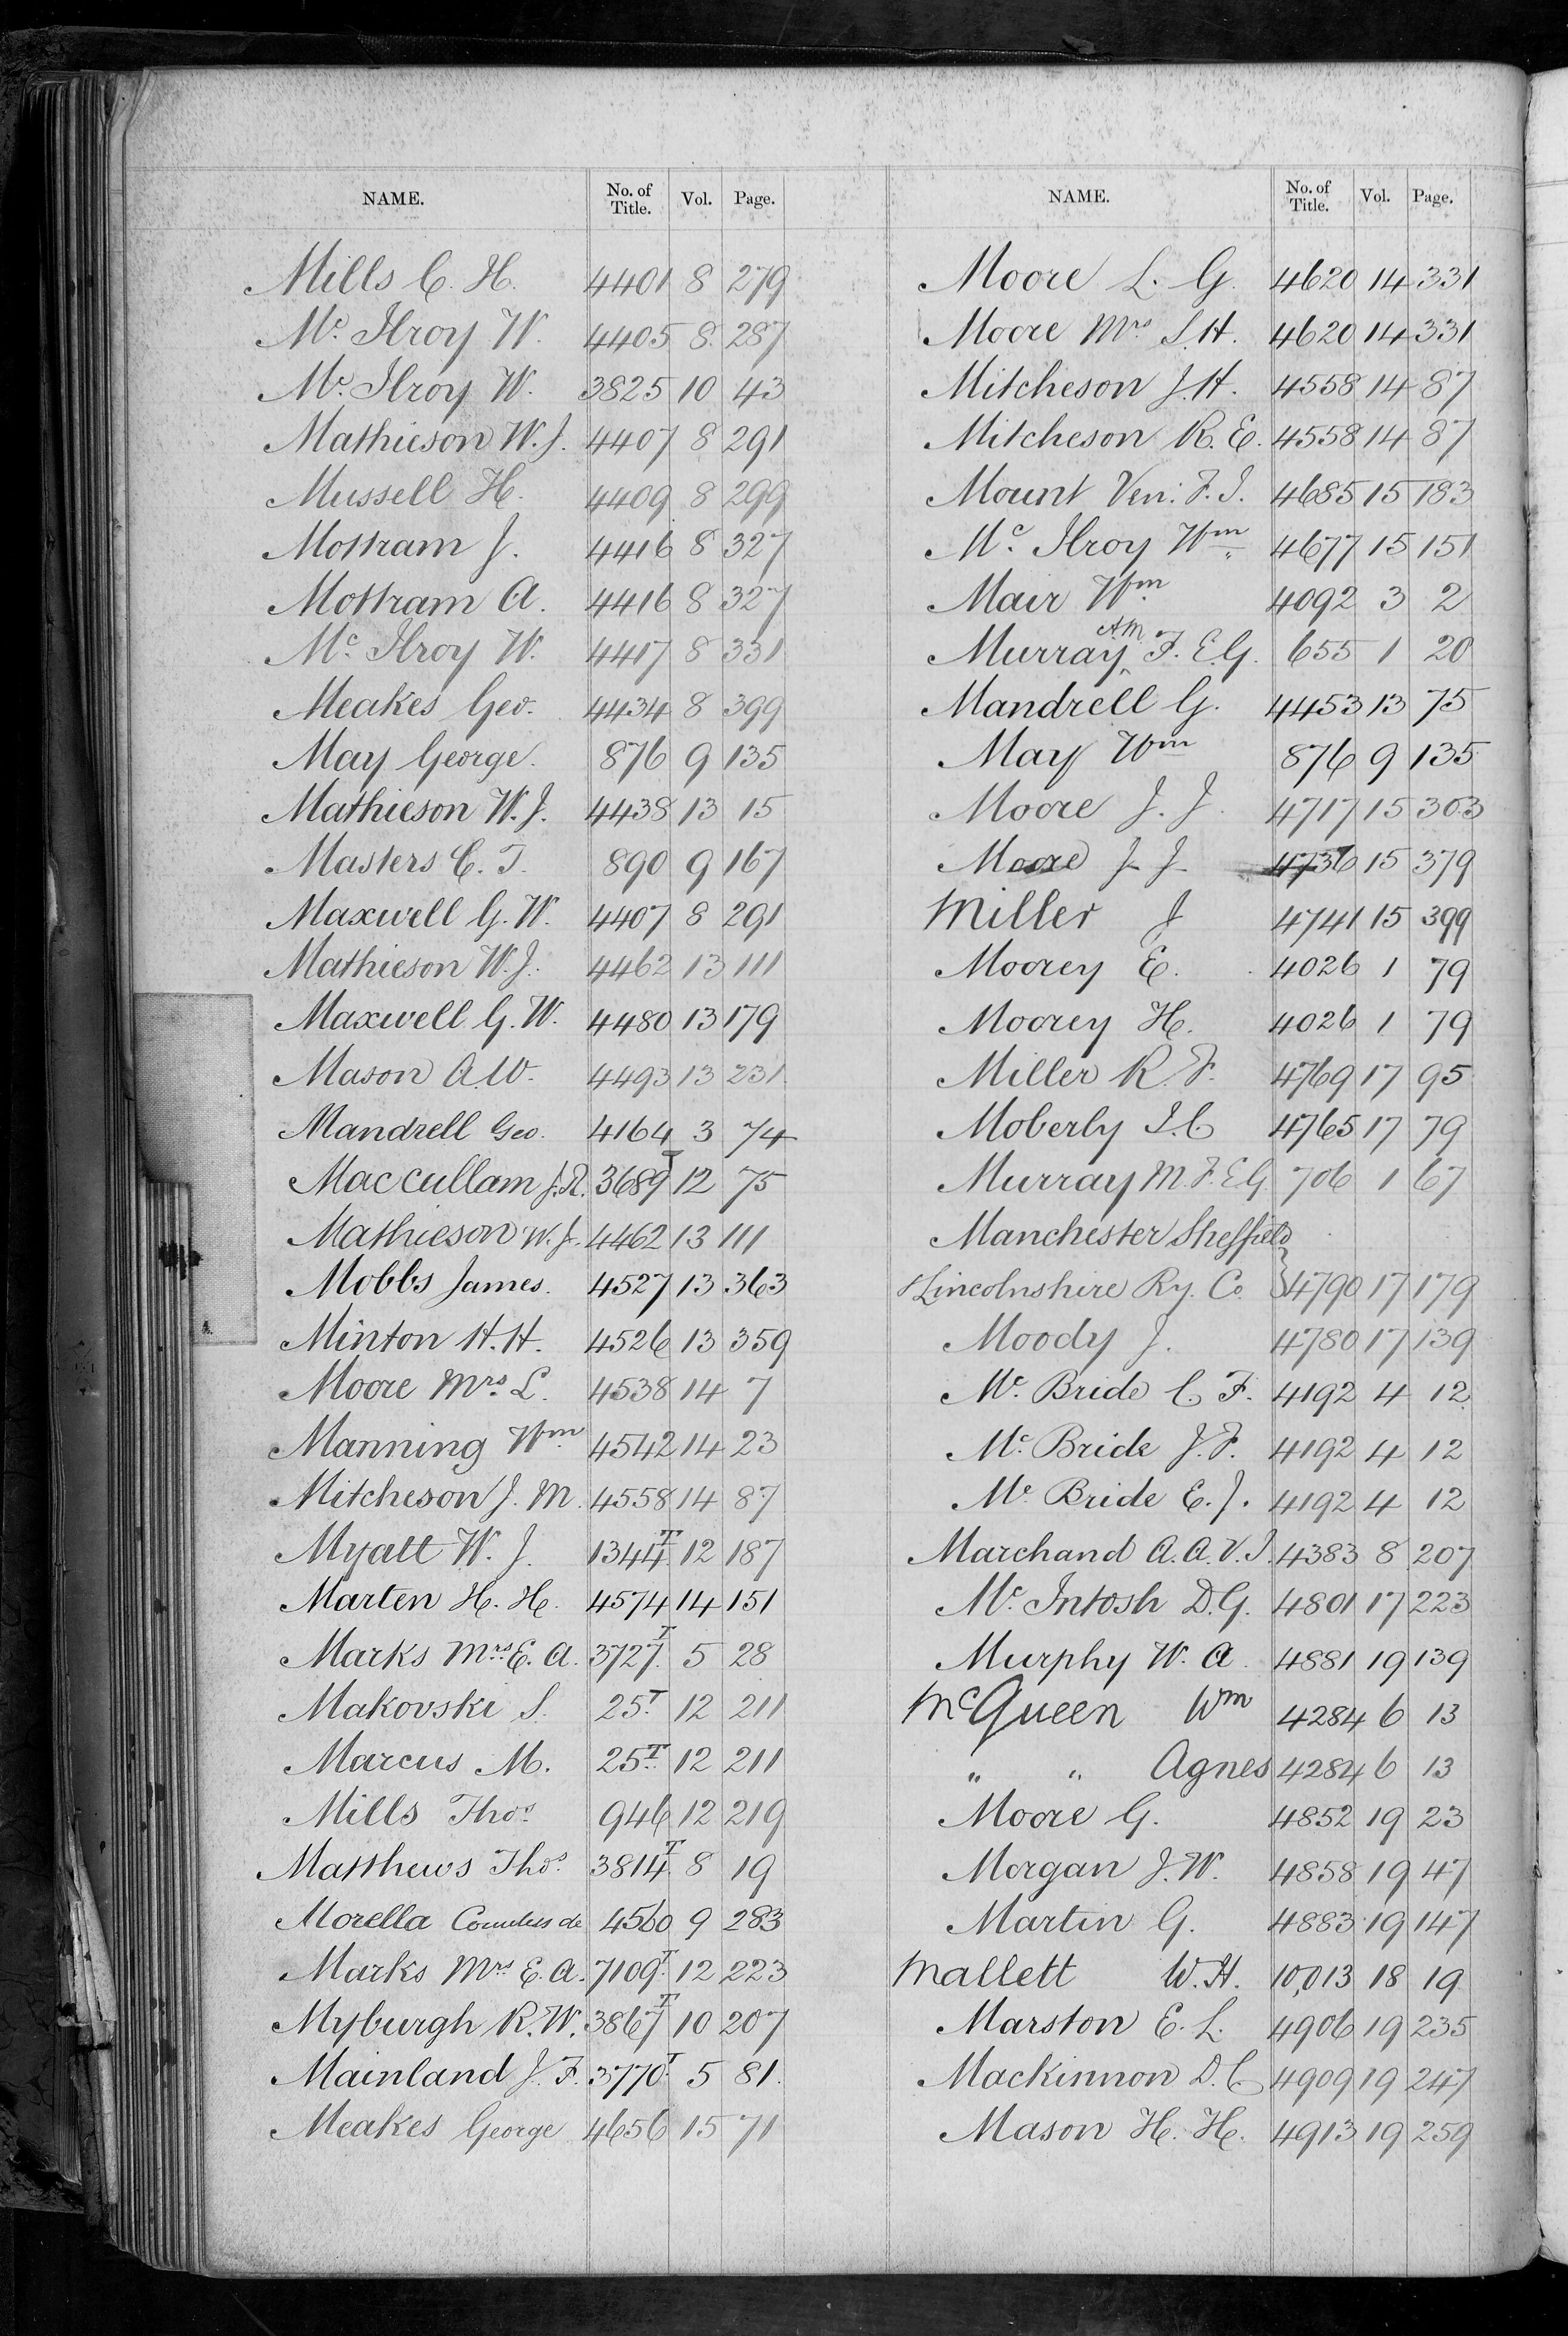 NAME. No. of Title. Vol. Page.
Mills C. H. 4401 8 279
Mc. Ilroy W. 4405 8 287
Mc. Ilroy W. 3825 10 43
Mathieson W. J. 4407 8 291
Mussell H. 4409 8 299
Mottram J. 4416 8 327
Mottram A. 4416 8 327
Mc. Ilroy W. 4417 8 331
Meakes Geo. 4434 8 399
May George. 876 9 135
Mathieson W. J. 4438 13 15
Masters C. T. 890 9 167
Maxwell G. W. 4407 8 291
Mathieson W. J. 4462 13 111
Maxwell G. W. 4480 13 179
Mason A. W. 4493 13 231
Mandrell Geo. 4164 3 74
Maccullam J. R. 3689T 12 75
Mathieson W. J. 4462 13 111
Mobbs James. 4527 13 363
Minton H. H. 4526 13 359
Moore Mrs L. 4538 14 7
Manning Wm 4542 14 23
Mitcheson J. M. 4558 14 87
Myatt W. J. 1344T 12 187
Marten H. H. 4574 14 151
Marks Mrs E. A. 3727T 5 28
Makovski S. 25T 12 211
Marcus M. 25T 12 211
Mills Thos 946 12 219
Matthews Thos. 3814T 8 19
Morella Countess de 4560 9 283
Marks Mrs E. A. 7109T 12 223
Myburgh R. W. 3867T 10 207
Mainland J. F. 3770T 5 81
Meakes George 4656 15 71
NAME. No. of Title. Vol. Page.
Moore L. G. 4620 14 331
Moore Mrs S. H. 4620 14 331
Mitcheson J. H. 4558 14 87
Mitcheson R. E. 4558 14 87
Mount Ven: F. J. 4685 15 183
Mc. Ilroy Wm 4677 15 151
Mair Wm 4092 3 2
Murray A.M. F. E. G. 655 1 20
Mandrell G. 4453 13 75
May Wm 876 9 135
Moore J. J. 4717 15 303
Moore J. J. 4736 15 379
Miller J 4741 15 399
Moorey E. 4026 1 79
Moorey H. 4026 1 79
Miller R. F. 4769 17 95
Moberly J. C 4765 17 79
Murray M. F. E. G. 706 1 67
Manchester Sheffield
& Lincolnshire Ry. Co. 4790 17 179
Moody J. 4780 17 139
Mc. Bride C. F. 4192 4 12
Mc. Bride J. F. 4192 4 12
Mc. Bride E. J. 4192 4 12
Marchand A. A. V. J. 4383 8 207
Mc. Intosh D. G. 4801 17 223
Murphy W. A. 4881 19 139
McQueen Wm 4284 6 13
" " Agnes 4284 6 13
Moore G. 4852 19 23
Morgan J. W. 4858 19 47
Martin G. 4883 19 147
Mallett W. H. 10,013 18 19
Marston E. L. 4906 19 235
Mackinnon D. C 4909 19 247
Mason H. H. 4913 19 259